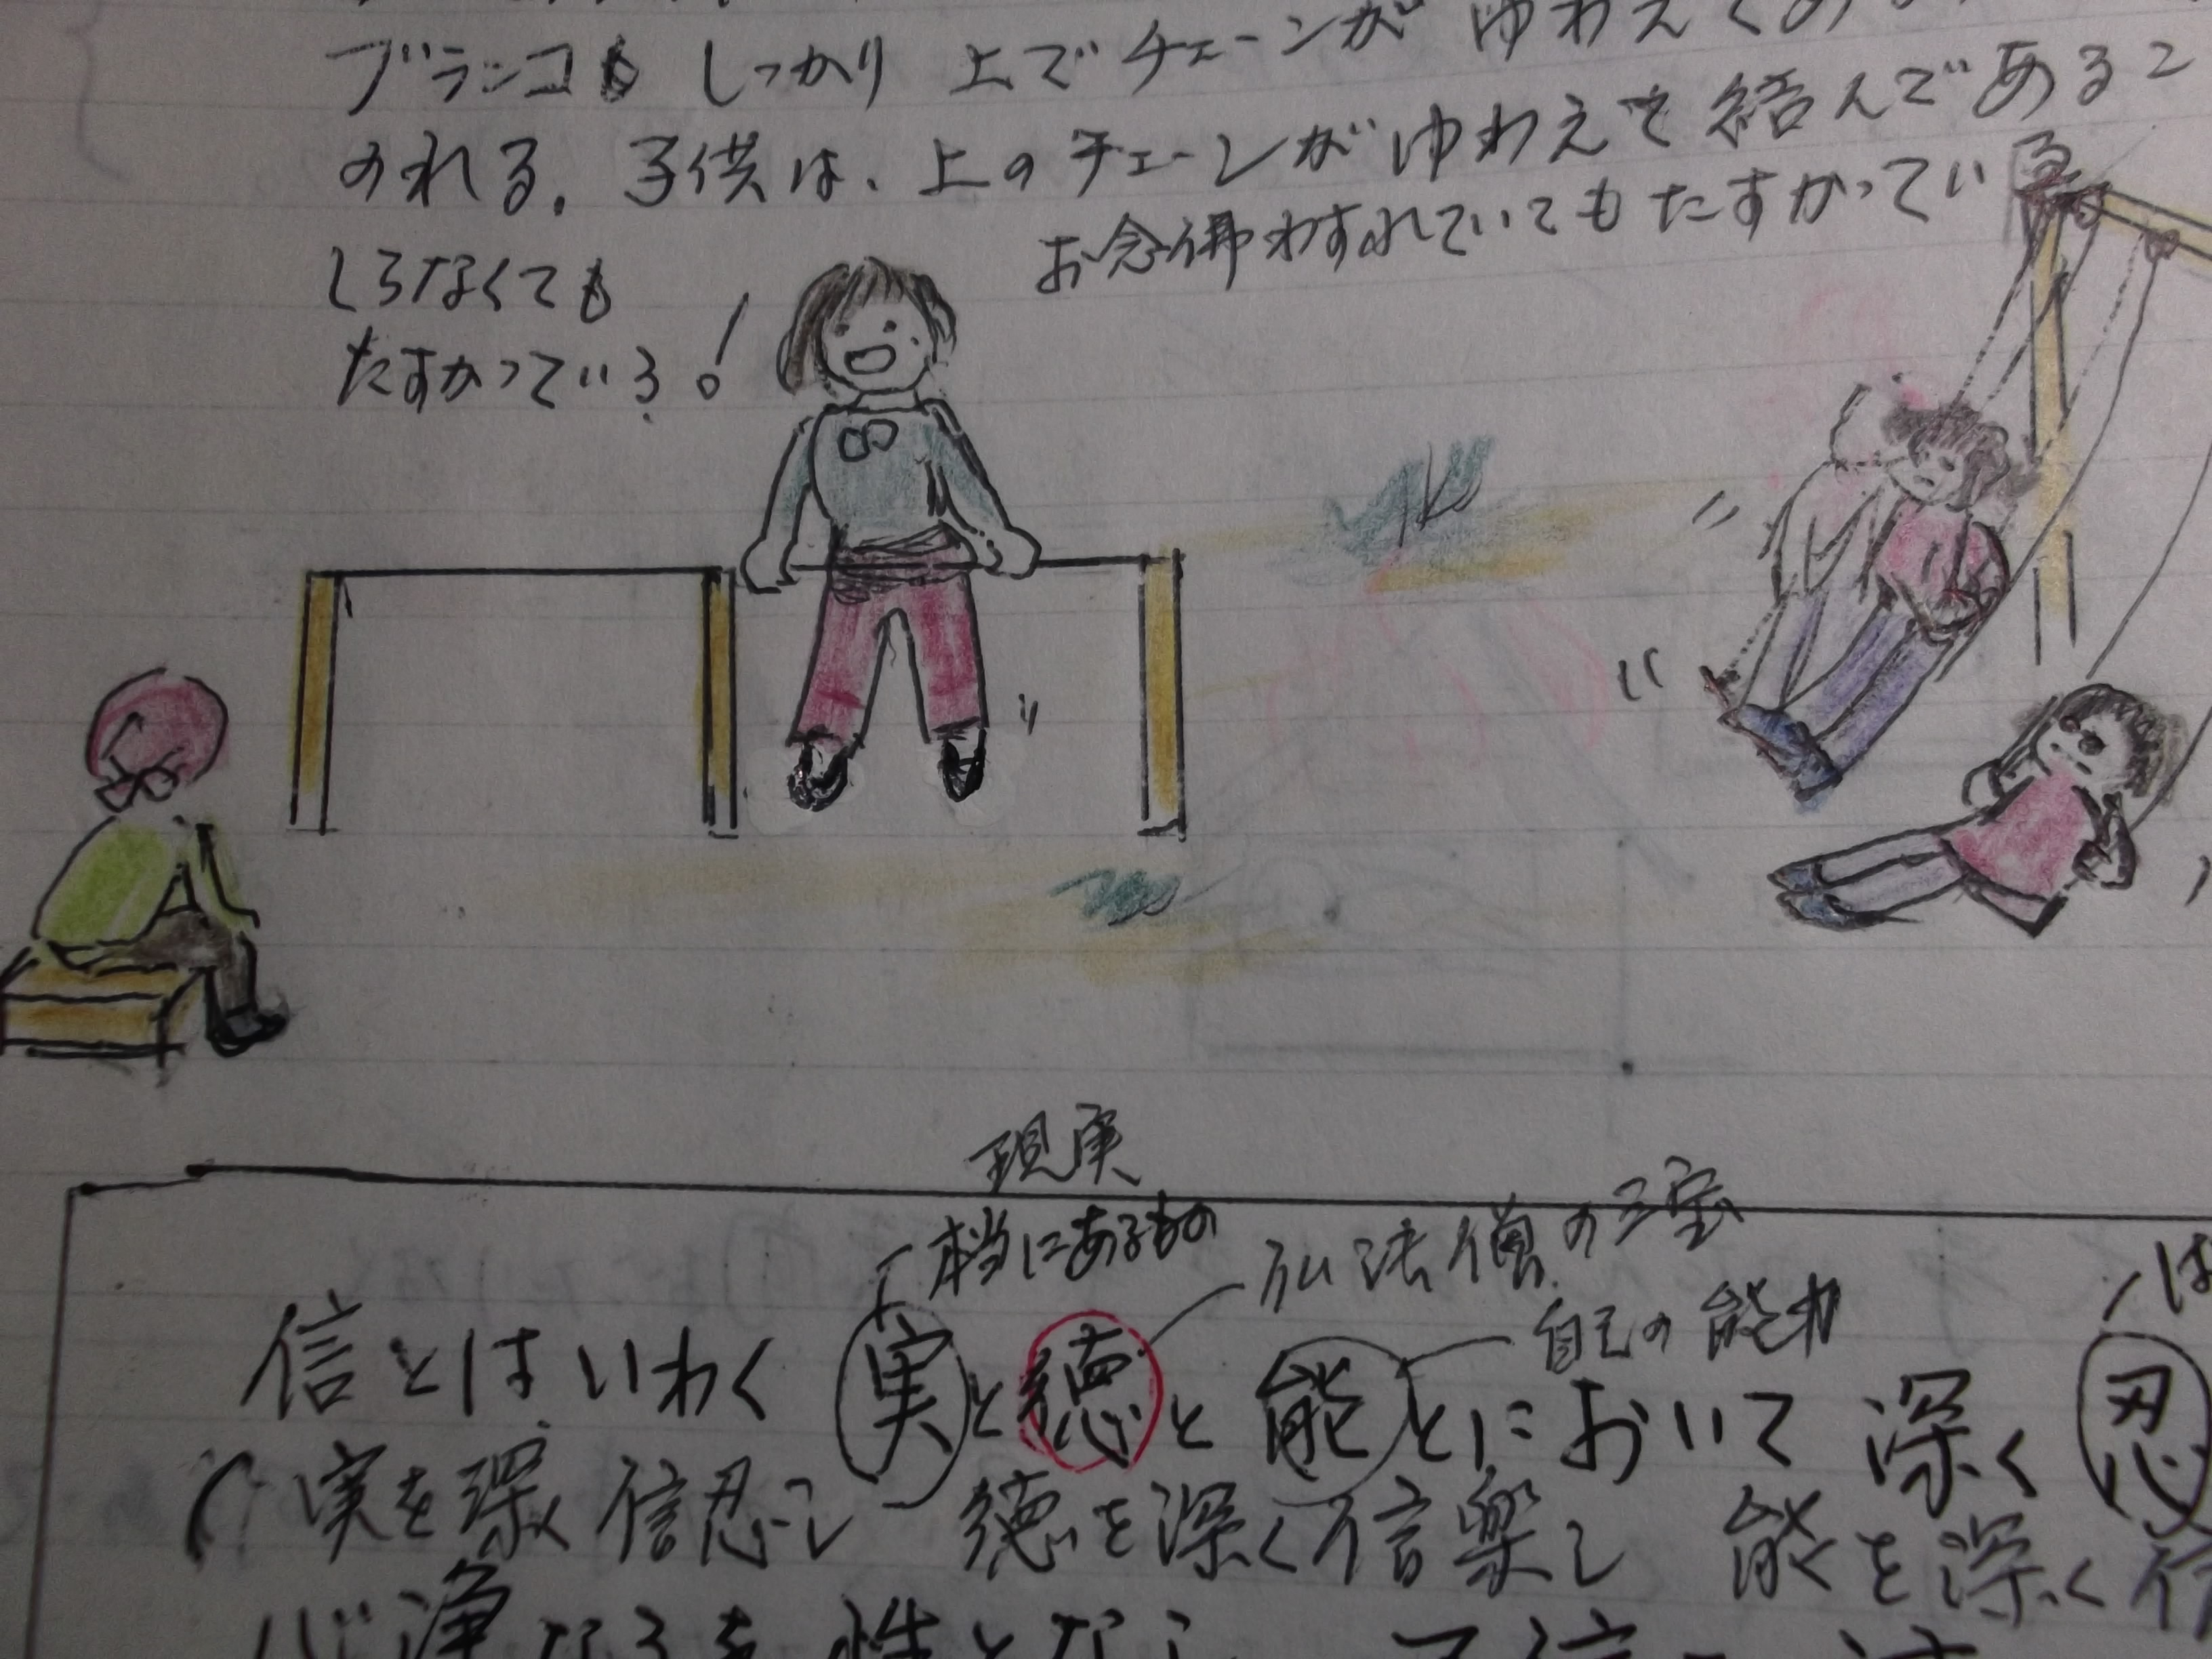 ブランコも しっかり 上でチェーンが ゆわえてある
のれる。子供は、上のチェーンがゆわえて結んであるこ
しらなくても
たすかっている!
お念佛わすれていてもたすかっている
現実
本当にあるもの
仏法僧の三宝
自己の能力
は
信とはいわく 実と徳と能とにおいて 深く 忍
実を深く信忍し 徳を深く信楽し 能を深く信
心浄なるを性となし